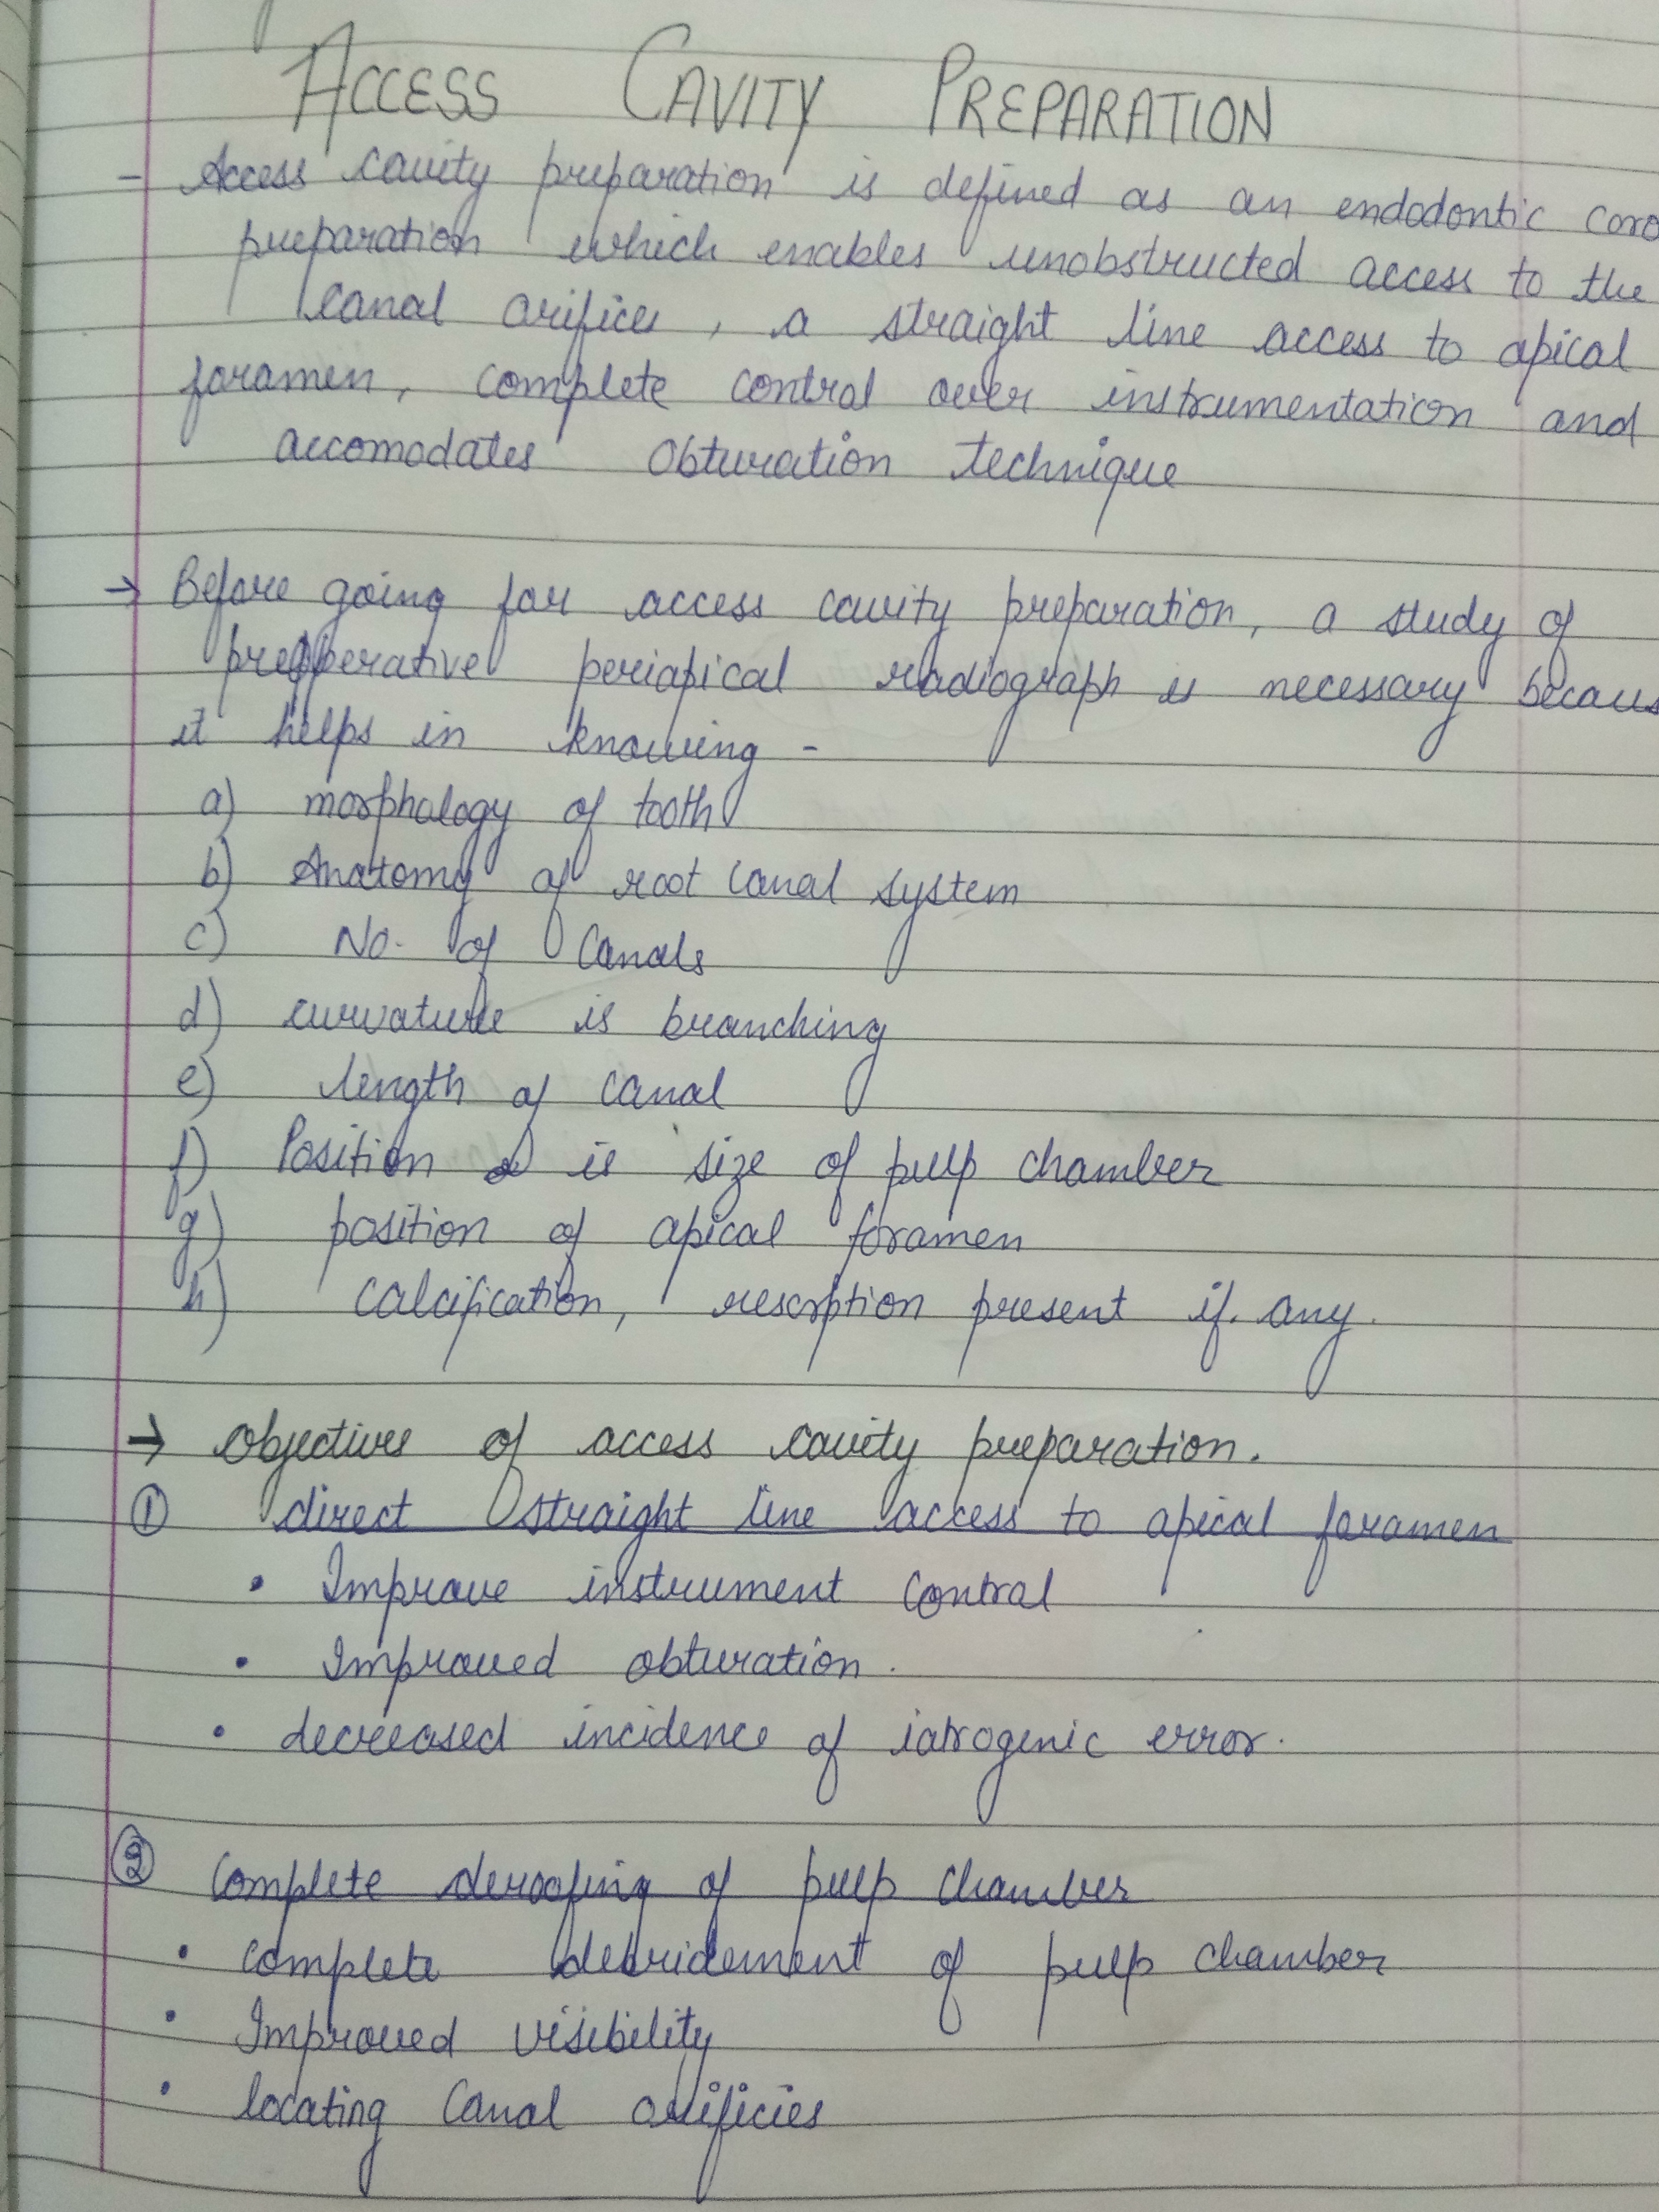 ACCESS CAVITY PREPARATION
- Access cavity preparation is defined as an endodontic coro
preparation which enables unobstructed access to the
canal orifices, a straight line access to apical
foramen, complete control over instrumentation and
accomodates obturation technique
→ Before going for access cavity preparation, a study of
preoperative periapical radiograph is necessary becaus
it helps in knowing -
a) morphology of tooth
b) Anatomy of root canal system
c) No. of Canals
d) curvature is branching
e) length of canal
f) Position is size of pulp chamber
g) position of apical foramen
h) calcification, resorption present if any.
→ Objectives of access cavity preparation.
① direct straight line access to apical foramen
• Improve instrument control
• Improved obturation.
• decreased incidence of iatrogenic error.
② Complete deroofing of pulp chamber
• complete debridement of pulp chamber
• Improved visibility
• locating Canal orificies